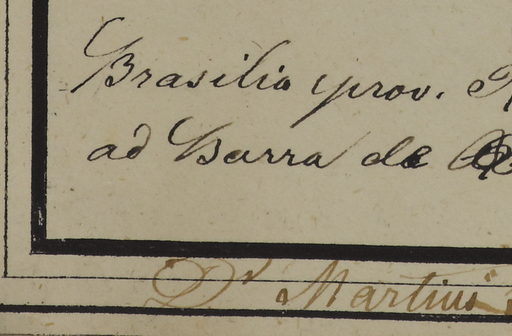 Brasilia prov.
ad Barra de
Dr Martius